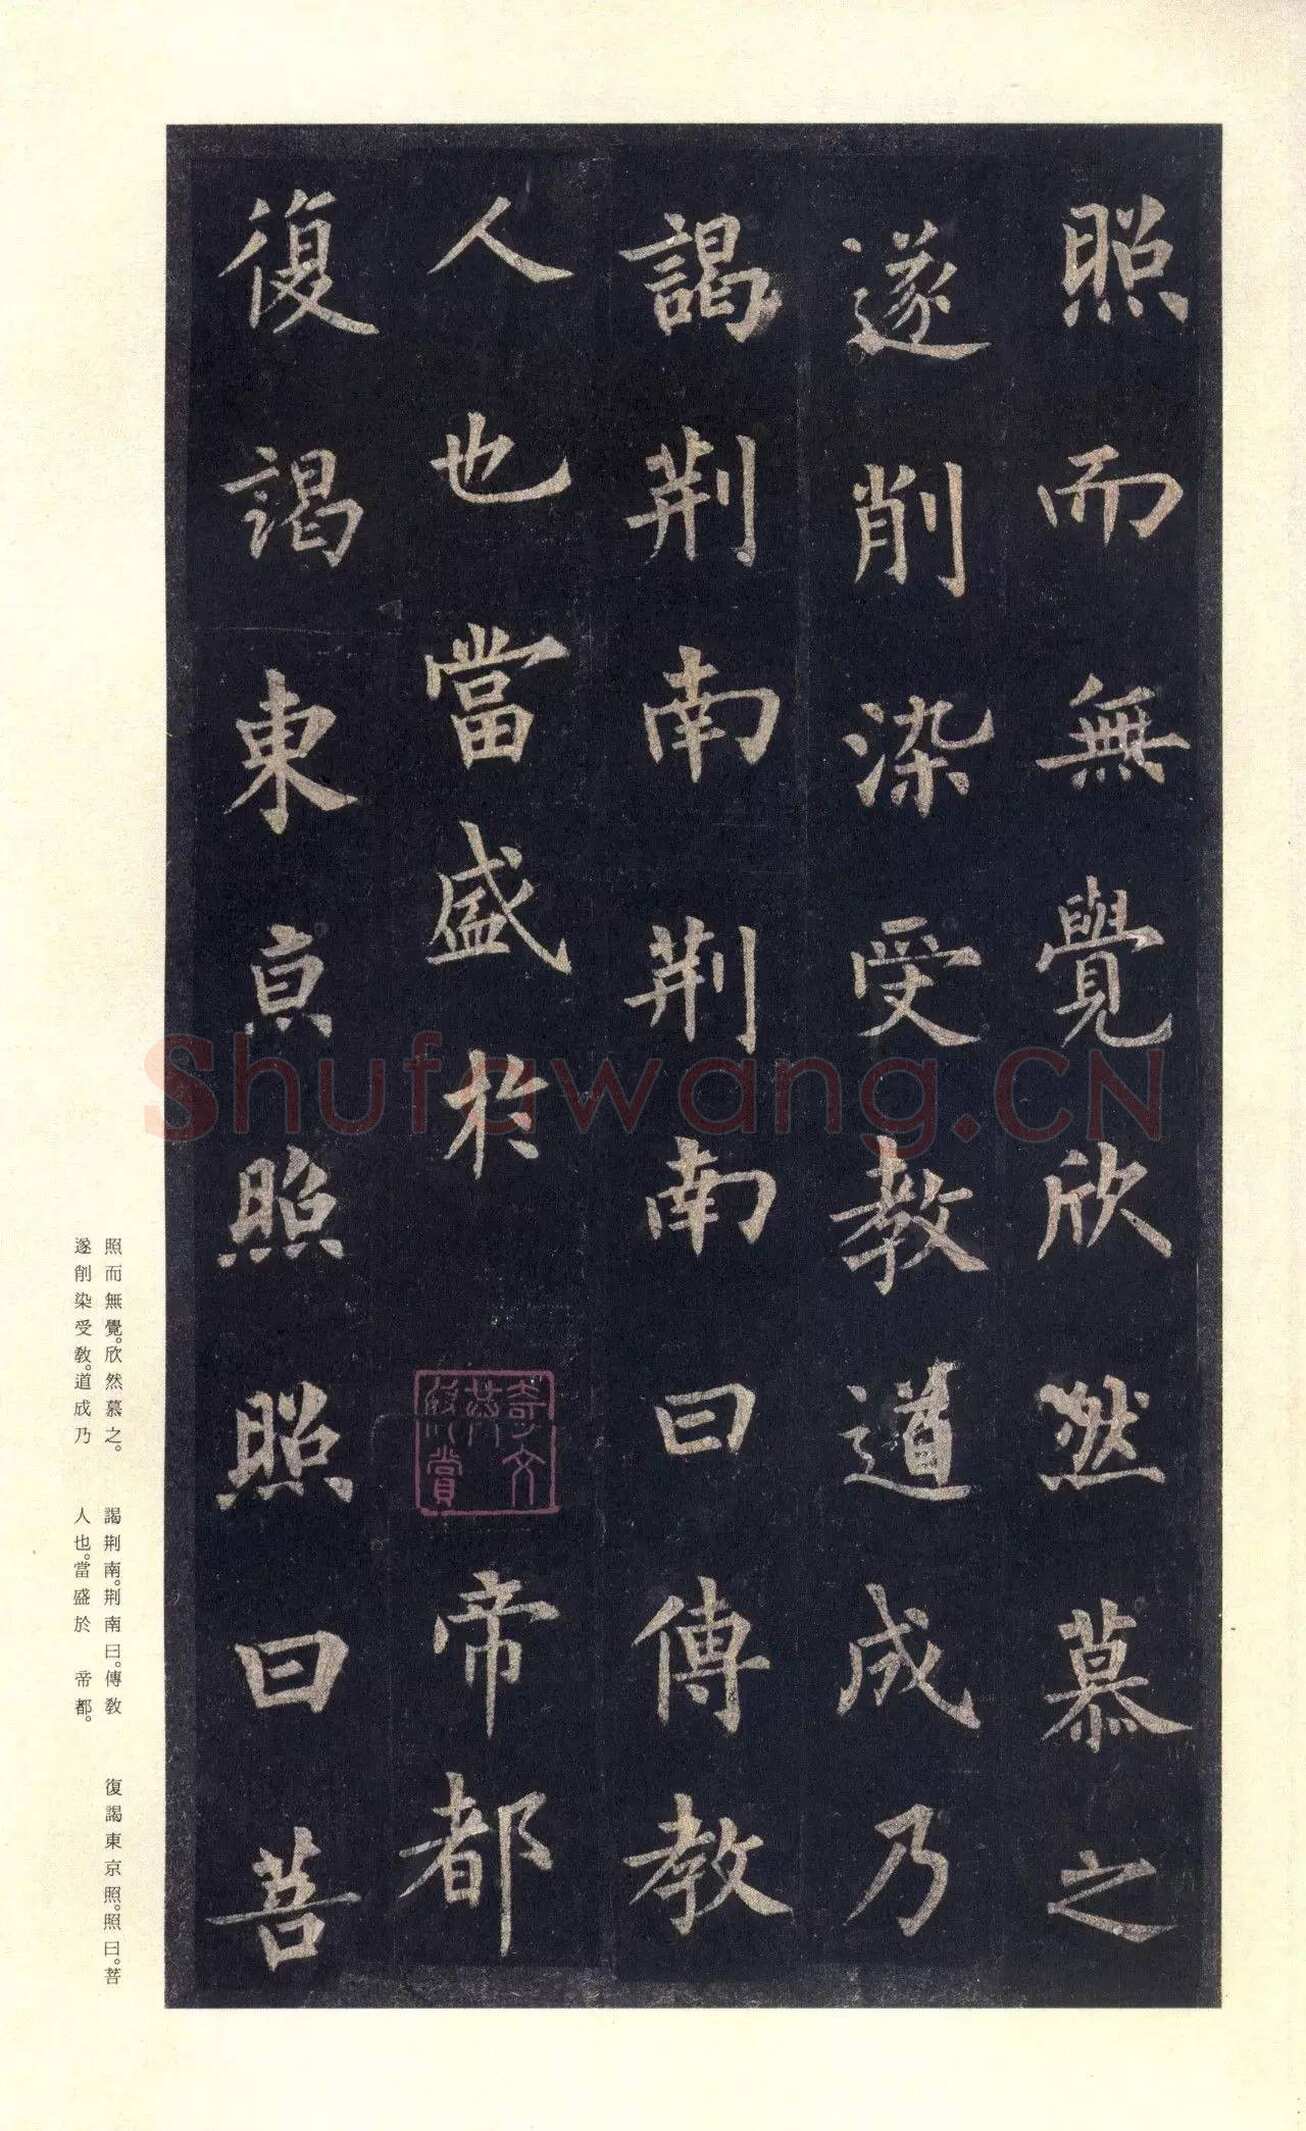 照而無覺欣然慕之
遂削染受教道成乃
謁荆南荆南曰傳教
人也當盛於帝都
復謁東京照照曰菩
奇文
共
欣賞
照而無覺。欣然慕之。
遂削染受教。道成乃
謁荆南。荆南曰。傳教
人也。當盛於 帝都。
復謁東京照。照曰。菩
Shufawang.CN